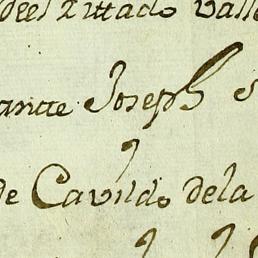 deel Zittado Valle
ante Joseph S
de Cavildo dela